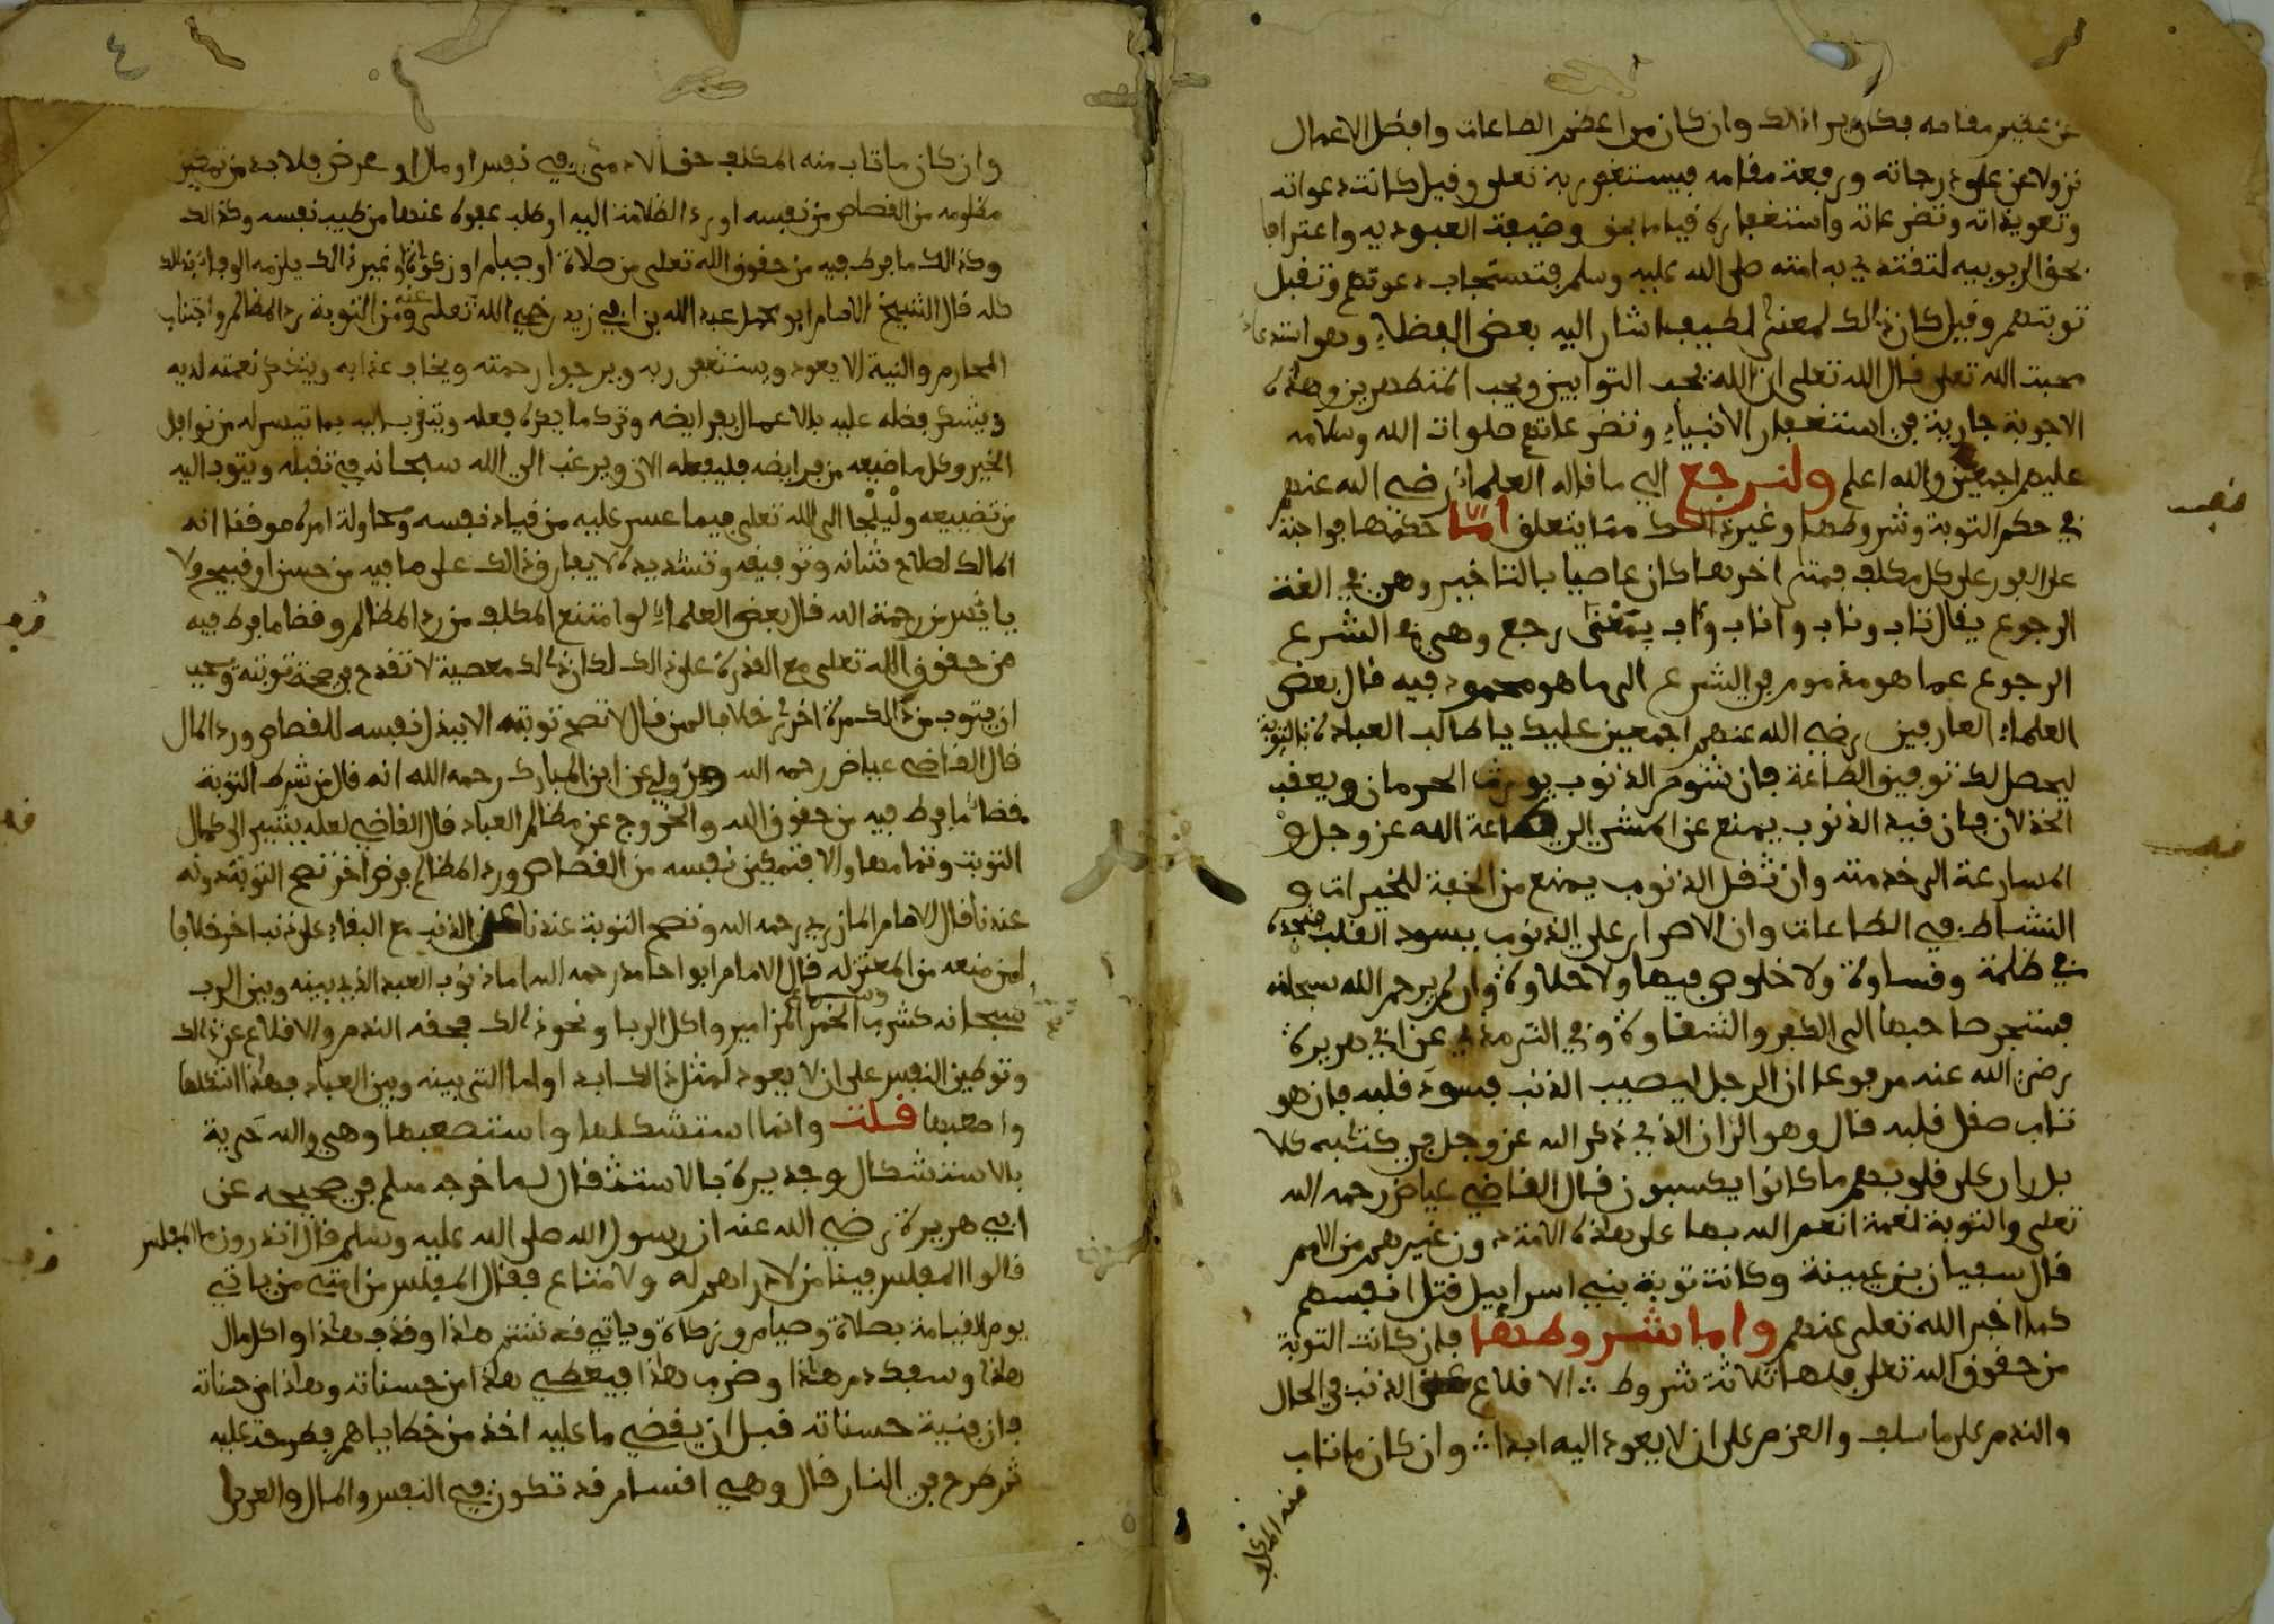 عن عظيم مقامه فكان يرا ذالك وان كان من اعضم الطاعات وافضل الاعمال
نزولا عن علو درجاته ورفعة مقامه فيستغفر ربه تعلى وقيل كانت دعواته
وتعويذاته وتضرعاته واستغفاره قياما بحق وضيفة العبوديه واعترافا
بحق الربوبيه لتقتدي به امته صلى الله عليه وسلم فتستجاب دعوتهم وتقبل
توبتهم وقيل كان ذالك لمعنى لطيف اشار اليه بعض الفضلاء وهو استدعاء
محبت الله تعلى قال الله تعلى ان الله يحب التوابين ويحب المتطهرين وهذه
الاجوبة جارية في استغفار الانبياء وتضرعاتهم صلوات الله وسلامه
عليهم اجمعين والله اعلم ولنرجع الى ما قاله العلماء رضي الله عنهم
في حكم التوبة وشروطها وغير ذالك مما يتعلق امّا حكمها فواجبة
على الفور على كل مكلف فمتى اخرها كان عاصيا بالتاخير وهي في اللغة
الرجوع يقال تاب وناب واناب وءاب بمعنى رجع وهي في الشرع
الرجوع عما هو مذموم في الشرع الى ما هو محمود فيه قال بعض
العلماء العارفين رضي الله عنهم اجمعين عليك يا طالب العبادة بالتوبة
ليحصل لك توفيق الطاعة فان شوم الذنوب يورث الحرمان ويعقب
الخذلان فان قيد الذنوب يمنع عن المشي الى طاعة الله عز وجل و
المسارعة الى خدمته وان ثقل الذنوب يمنع من الخفة للخيرات و
النشاط في الطاعات وان الاصرار على الذنوب يسود القلب فتجده
في ظلمة وقساوة ولا خلوص فيها ولا حلاوة وان لم يرحم الله سبحانه
فستجر صاحبها الى الكفر والشقاوة وفي الترمذي عن ابي هريرة
رضي الله عنه مرفوعا ان الرجل ليصيب الذنب فيسود قلبه فان هو
تاب صقل قلبه قال وهو الران الذي ذكر الله عز وجل في كتبه كلا
بل ران على قلوبهم ما كانوا يكسبون قال القاضي عياض رحمه الله
تعلى والتوبة نعمة انعم الله بها على هذه الامة دون غيرهم من الامم
قال سفيان بن عيينة وكانت توبة بني اسراءيل قتل انفسهم
كما اخبر الله تعلى عنهم واما شروطها فان كانت التوبة
من حقوق الله تعلى فلها ثلاثة شروط الاقلاع عن الذنب في الحال
والندم على ما سلف والعزم على ان لا يعود اليه ابدا وان كان ما تاب
منه المكلف
وان كان ما تاب منه المكلف حق الادمي في نفس او مال او عرض فلا بد من تمكين
مظلومه من القصاص من نفسه او رد الظلامة اليه او طلب عفوه عنها من طيب نفسه وكذالك
وكذالك ما فرط فيه من حقوق الله تعلى من صلاة او صيام او زكواة او غير ذالك يلزمه الوفاء بذالك
كله قال الشيخ الامام ابو محمد عبد الله بن ابي زيد رضي الله تعلى عنه ومن التوبة رد المظالم واجتناب
المحارم والنية الا يعود ويستغفر ربه ويرجوا رحمته ويخاف عذابه ويتذكر نعمته لديه
ويشكر فضله عليه بالاعمال بفرايضه وترك ما يكره فعله ويتقرب اليه بما تيسر له من نوافل
الخير وكل ما ضيعه من فرايضه فليفعله الان ويرغب الى الله سبحانه في تقبله ويتوب اليه
من تضييعه وليلجا الى الله تعلى فيما عسر عليه من قياد نفسه ومحاولة امره موقفا انه
المالك لصلاح شانه وتوفيقه وتسديده لا يفارق ذالك على ما فيه من حسن او قبيح ولا
يايئس من رحمة الله قال بعض العلماء لو امتنع المكلف من رد المظالم وقضا ما فرط فيه
من حقوق الله تعلى مع القدرة على ذالك لكان ذالك معصية لا تقدح في صحة توبته ويجب
ان يتوب من ذالك مرة اخرى خلافا لمن قال لا تصح توبته الا ببذل نفسه للقصاص ورد المال
قال القاضي عياض رحمه الله وروي عن ابن المبارك رحمه الله انه قال من شرط التوبة
قضاء ما فرط فيه من حقوق الله والخروج عن مظالم العباد قال القاضي لعله يشير الى كمال
التوبة وتمامها والا فتمكين نفسه من القصاص ورد المظالم فرض اخر تصح التوبة دونه
عندنا قال الامام المازري رحمه الله وتصح التوبة عندنا عن الذنب مع البقاء على ذنب اخر خلافا
لمن منعه من المعتزله قال الامام ابو حامد رحمه الله اما ذنوب العبد الذي بينه وبين الرب
سبحانه كشرب الخمر وسماع المزامير واكل الربا ونحو ذالك فحقه الندم والاقلاع عن ذالك
وتوطين النفس على ان لا يعود لمثل ذالك ابدا واما التي بينه وبين العباد فهذا اثقلها
واصعبها قلت وانما استشكلها واستصعبها وهي والله حرية
بالاستشكال وجديرة بالاستثقال لما خرجه مسلم في صحيحه عن
ابي هريرة رضي الله عنه ان رسول الله صلى الله عليه وسلم قال اتدرون ما المفلس
قالوا المفلس فينا من لا دراهم له ولا متاع فقال المفلس من امتي من ياتي
يوم القيامة بصلاة وصيام وزكاة وياتي قد شتم هذا وقذف هذا واكل مال
هذا وسفك دم هذا وضرب هذا فيعطى هذا من حسناته وهذا من حسناته
فان فنية حسناته قبل ان يقضي ما عليه اخذ من خطاياهم فطرحت عليه
ثم طرح في النار قال وهي اقسام قد تكون في النفس والمال والعرض